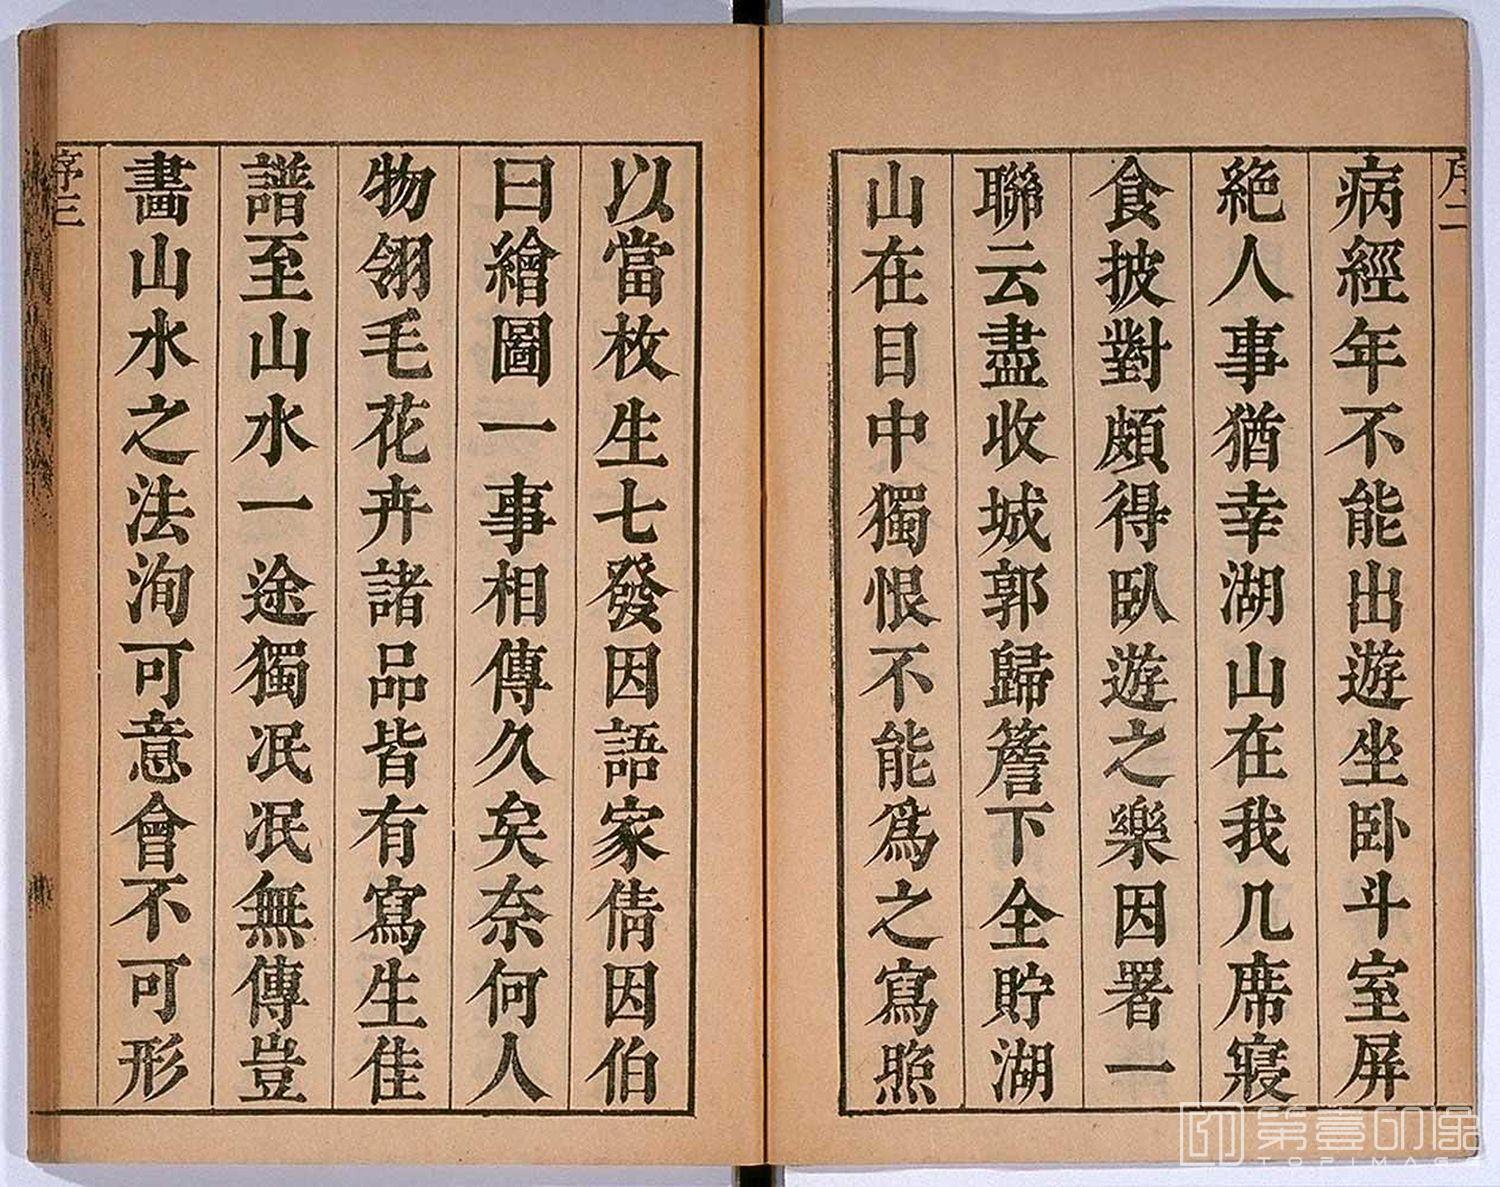 序二
病經年不能出遊坐卧斗室屏
絶人事猶幸湖山在我几席寢
食披對頗得臥遊之樂因署一
聯云盡收城郭歸簷下全貯湖
山在目中獨恨不能爲之寫照
以當枚生七發因語家倩因伯
曰繪圖一事相傳久矣奈何人
物翎毛花卉諸品皆有寫生佳
譜至山水一途獨泯泯無傳豈
畫山水之法洵可意會不可形
序三
第壹印像
TOPIMAGE